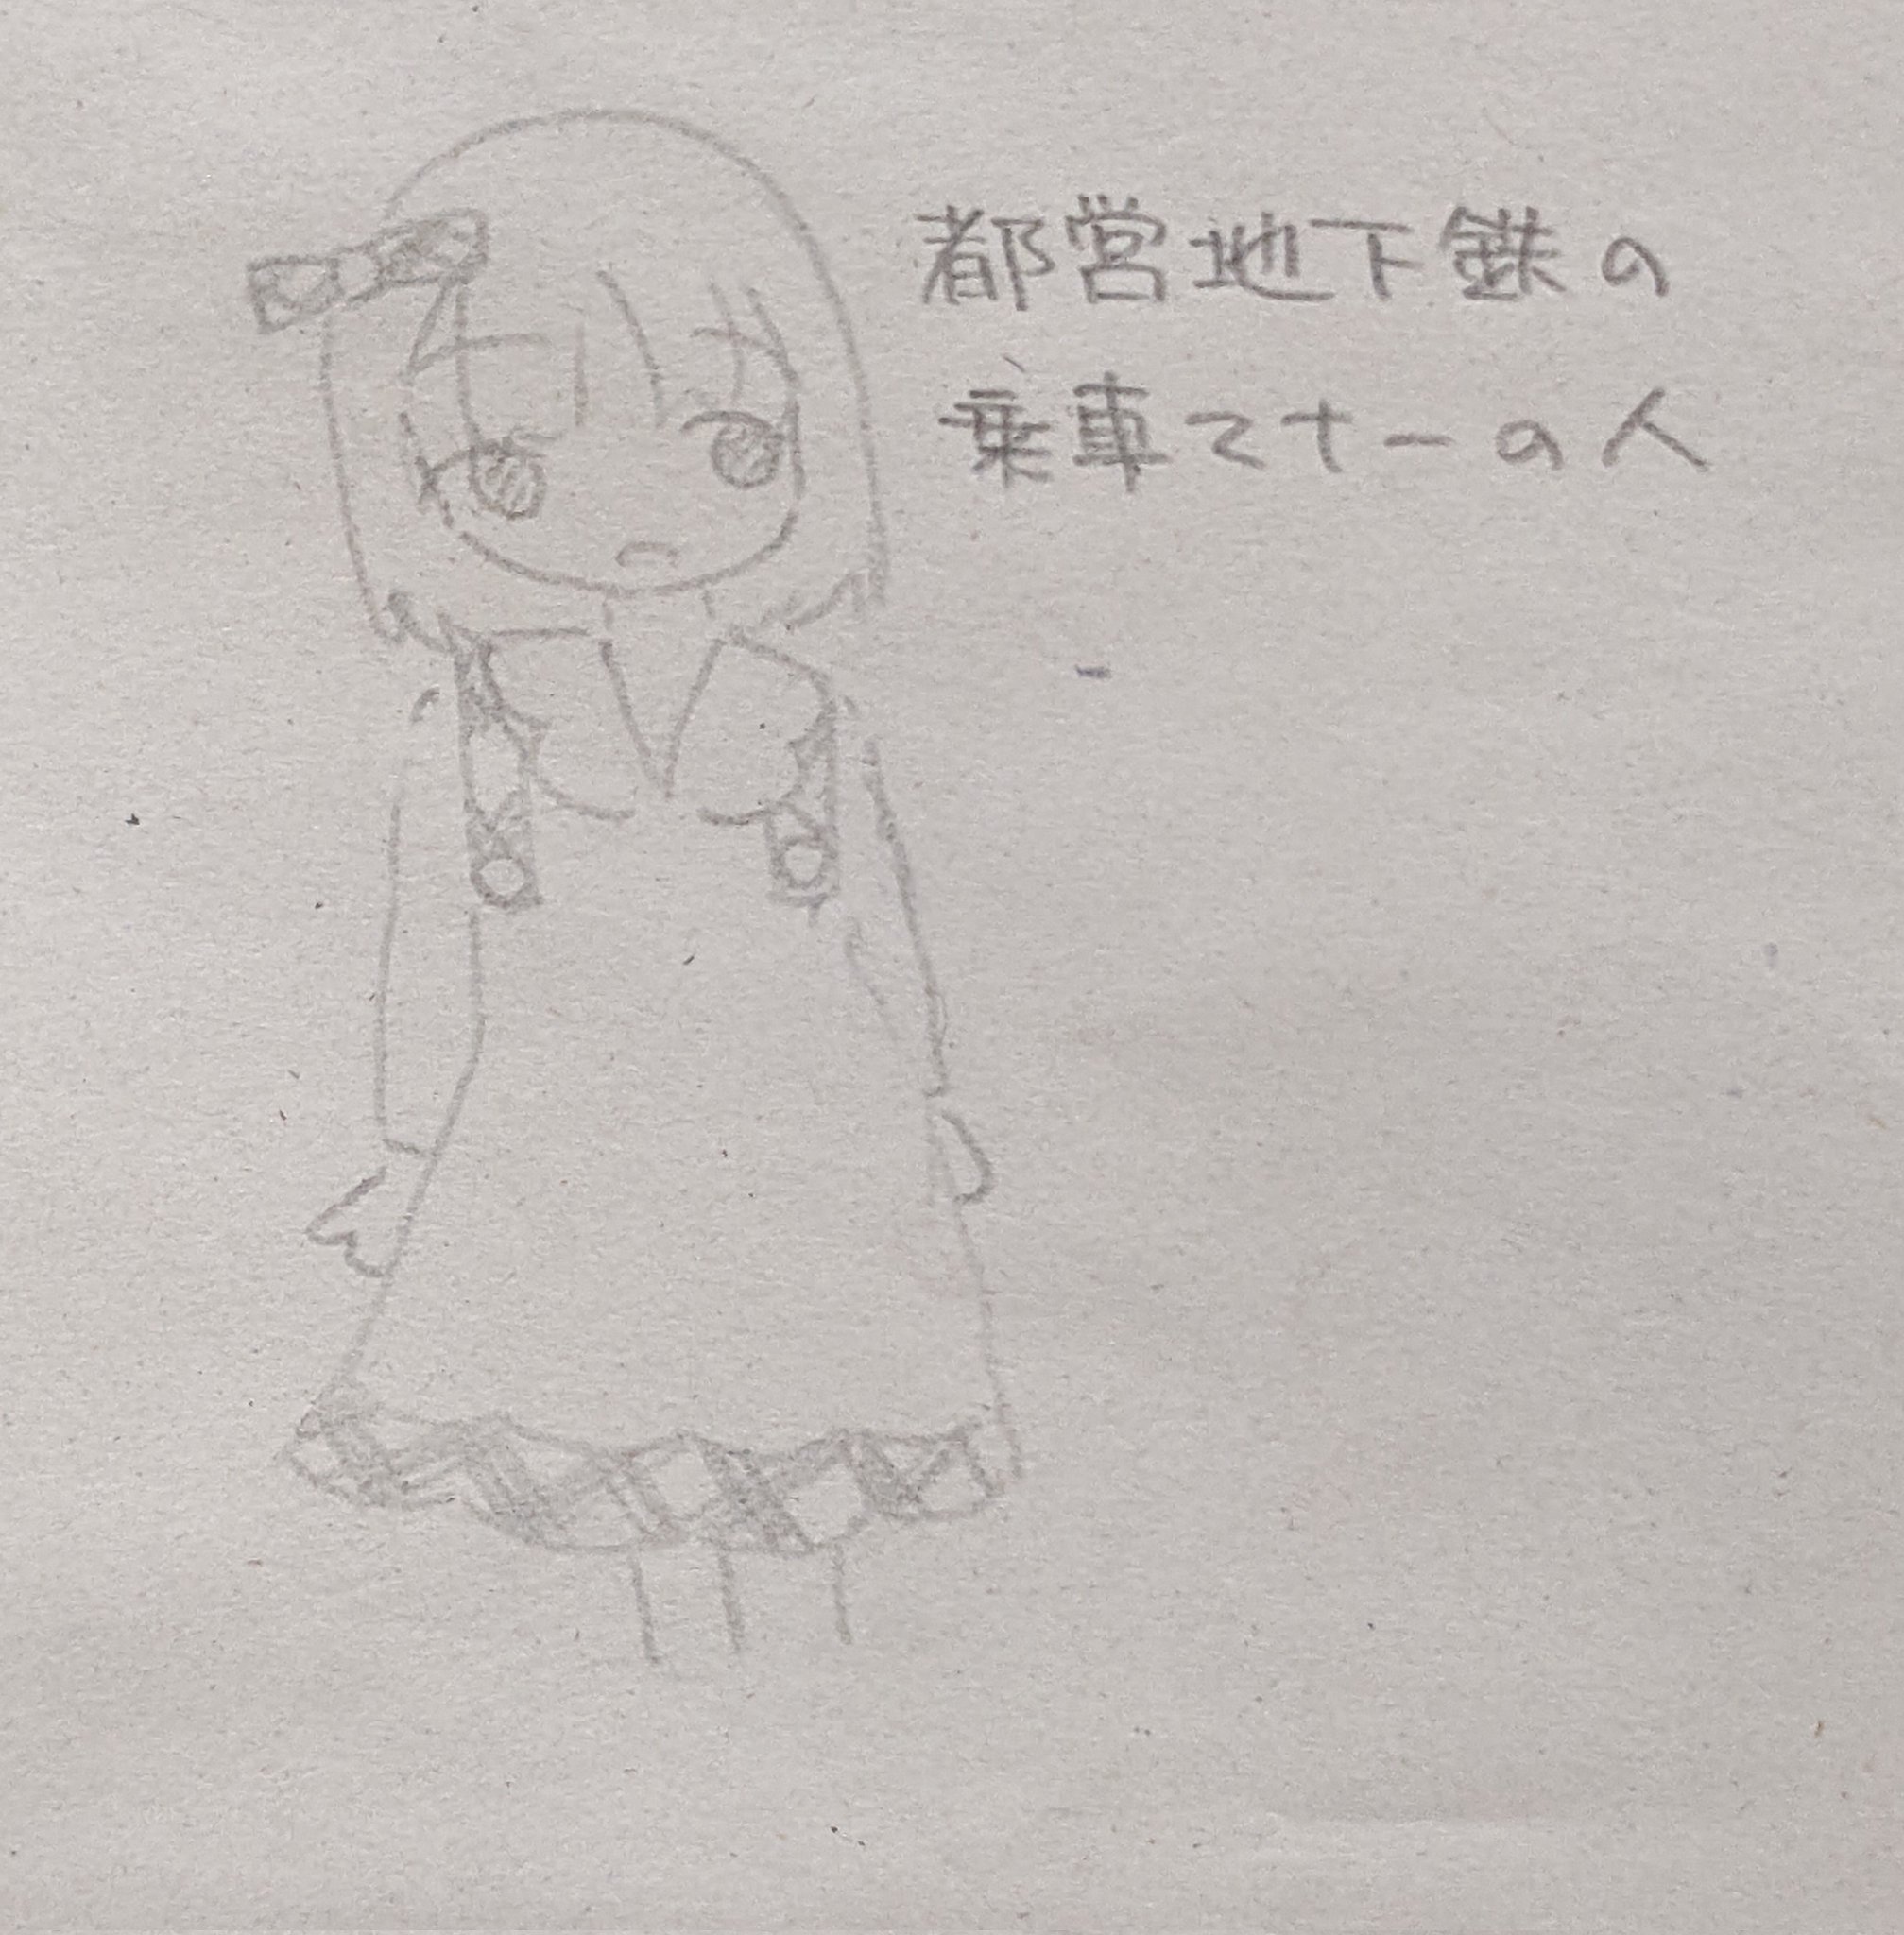 都営地下鉄の
乗車マナーの人